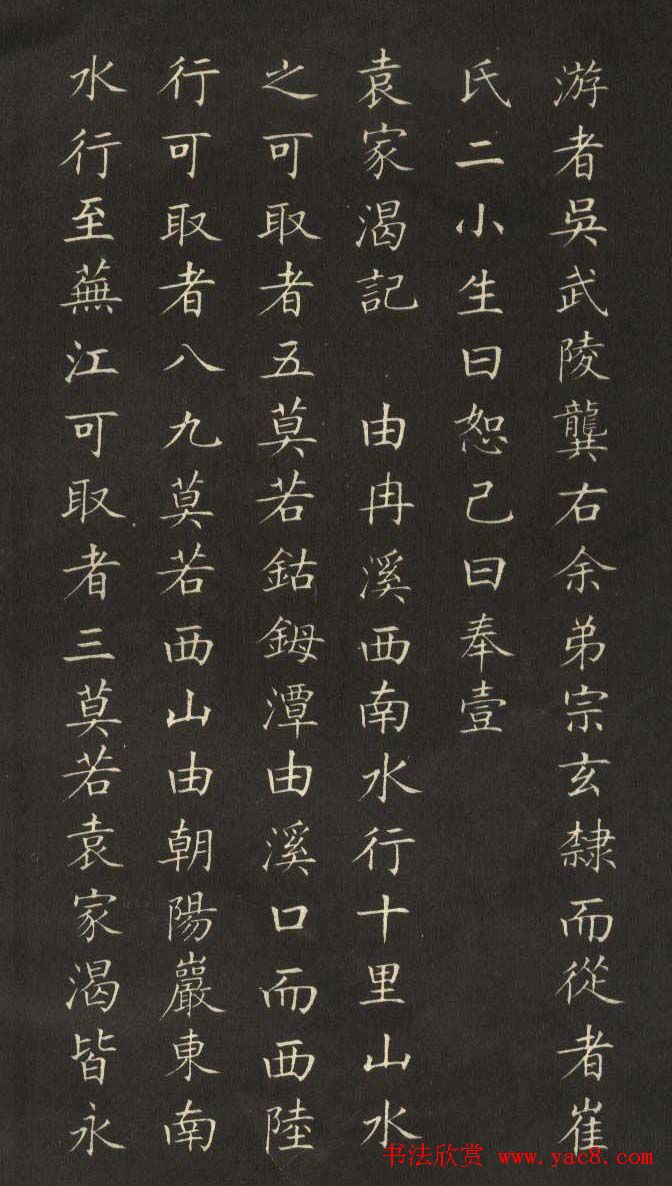 游者吳武陵龔右余弟宗玄隸而從者崔
氏二小生曰恕己曰奉壹
袁家渴記　由冉溪西南水行十里山水
之可取者五莫若鈷鉧潭由溪口而西陸
行可取者八九莫若西山由朝陽巖東南
水行至蕪江可取者三莫若袁家渴皆永
书法欣赏 www.yac8.com